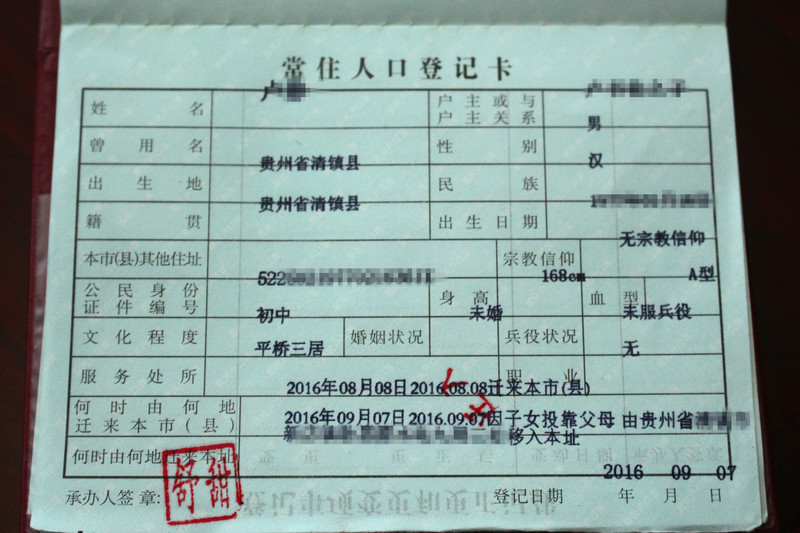 常住人口登记卡
卢
姓名
户主或与户主关系
男
曾用名
性别
汉
贵州省清镇县
出生地
民族
贵州省清镇县
籍贯
出生日期
无宗教信仰
本市(县)其他住址
宗教信仰
168cm
A型
公民身份证件编号
身高
血型
初中
未婚
未服兵役
文化程度
婚姻状况
兵役状况
平桥三居
无
服务处所
职业
2016年08月08日2016.08.08迁来本市(县)
何时由何地迁来本市(县)
2016年09月07日2016.09.07因子女投靠父母 由贵州省
移入本址
何时由何地迁来本址
2016 09 07
承办人签章:
舒甜
登记日期 年 月 日